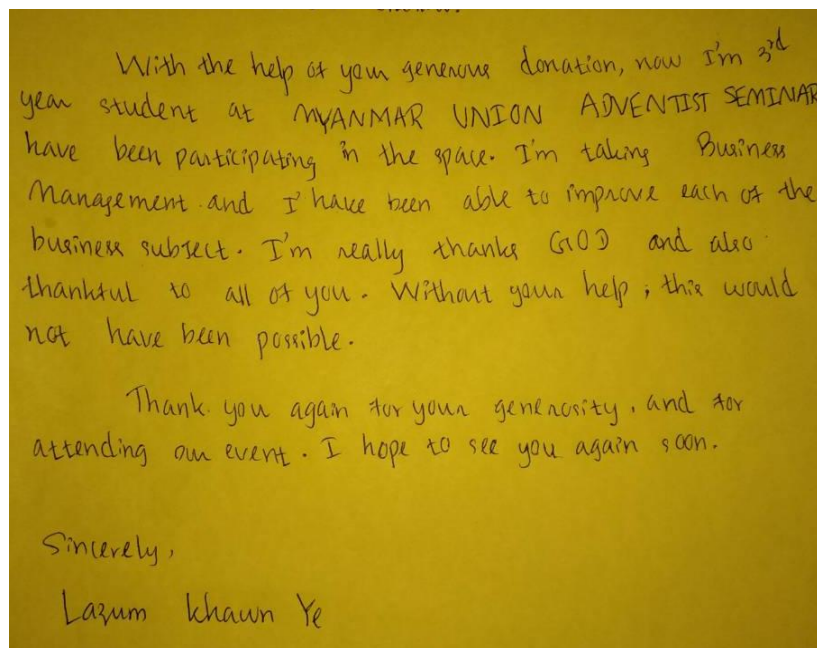 With the help of your generous donation, now I'm 3rd
year student at MYANMAR UNION ADVENTIST SEMINAR
have been participating in the space. I'm taking Business
Management and I have been able to improve each of the
business subject. I'm really thanks GOD and also
thankful to all of you. Without your help, this would
not have been possible.
Thank you again for your generosity, and for
attending our event. I hope to see you again soon.
Sincerely,
Lazum Khawn Ye